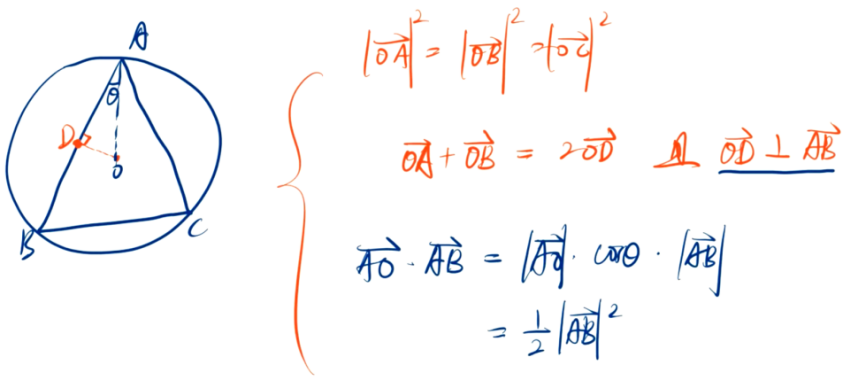 A
θ
D
O
B
C
|OA|² = |OB|² = |OC|²
OA + OB = 2OD 且 OD ⊥ AB
AO · AB = |AO| · cosθ · |AB|
= 1/2 |AB|²